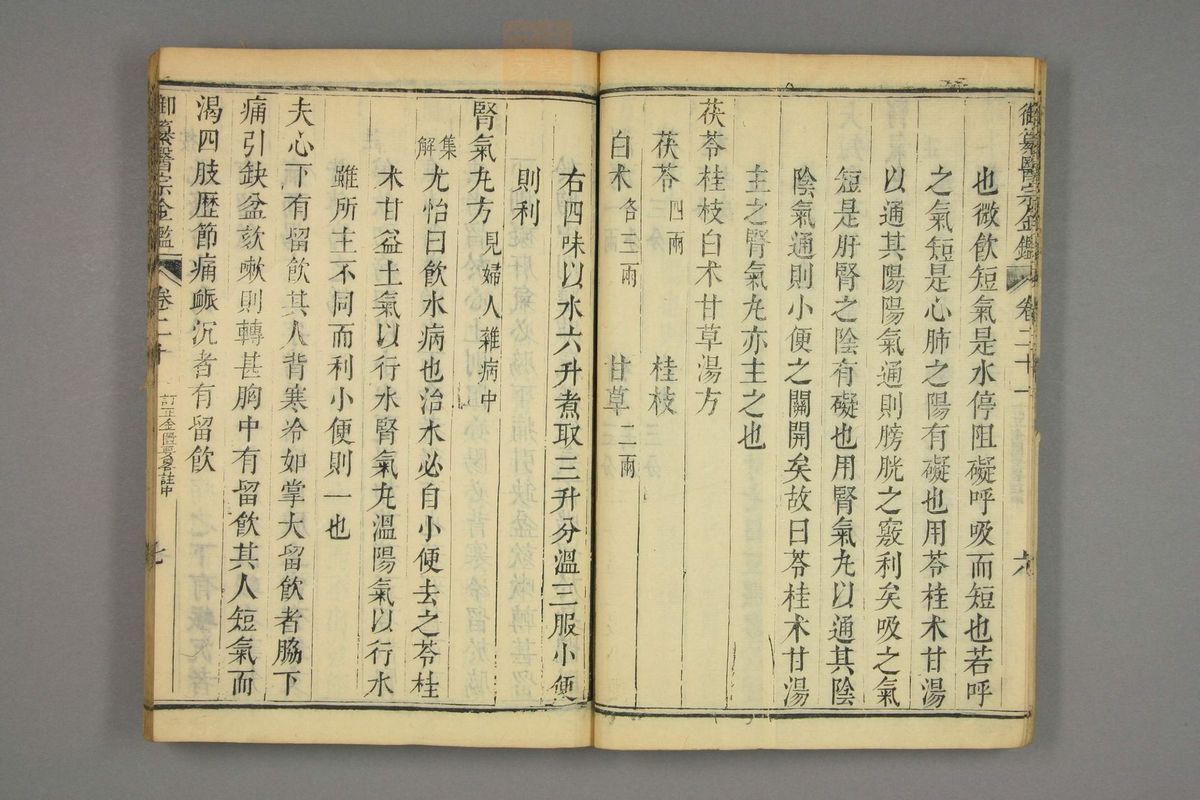 御纂醫宗金鑑 卷二十一 六
也微飲短氣是水停阻礙呼吸而短也若呼
之氣短是心肺之陽有礙也用苓桂术甘湯
以通其陽陽氣通則膀胱之竅利矣吸之氣
短是肝腎之陰有礙也用腎氣丸以通其陰
陰氣通則小便之關開矣故曰苓桂术甘湯
主之腎氣丸亦主之也
茯苓桂枝白术甘草湯方
茯苓四兩 桂枝
白术各三兩 甘草二兩
右四味以水六升煮取三升分溫三服小便
則利
腎氣丸方見婦人雜病中
集解尤怡曰飲水病也治水必自小便去之苓桂
术甘益土氣以行水腎氣丸溫陽氣以行水
雖所主不同而利小便則一也
夫心下有留飲其人背寒冷如掌大留飲者脇下
痛引缺盆欬嗽則轉甚胸中有留飲其人短氣而
渴四肢歷節痛脈沉者有留飲
御纂醫宗金鑑 卷二十 訂正金匱要畧註中 七